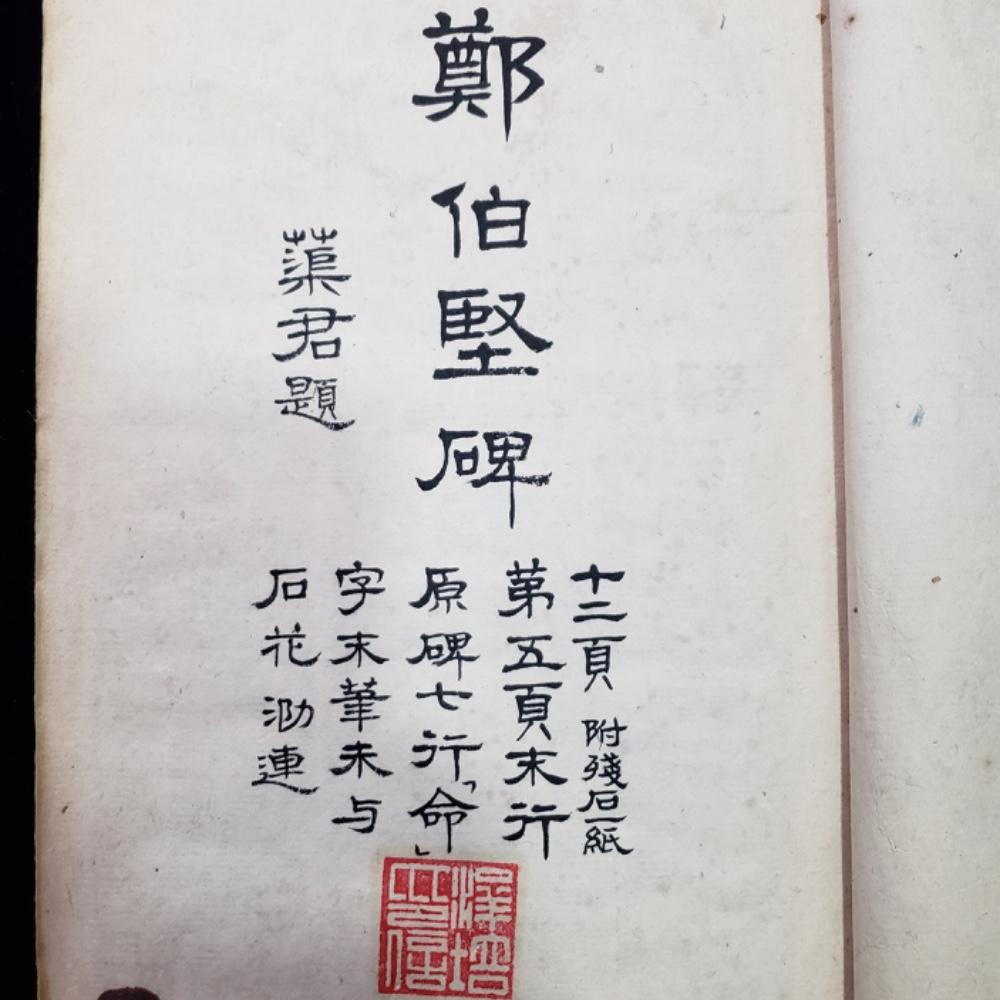 鄭伯堅碑
十二頁 附殘石一紙
第五頁末行
原碑七行「命」
字末筆未与
石花泐連
蕖君題